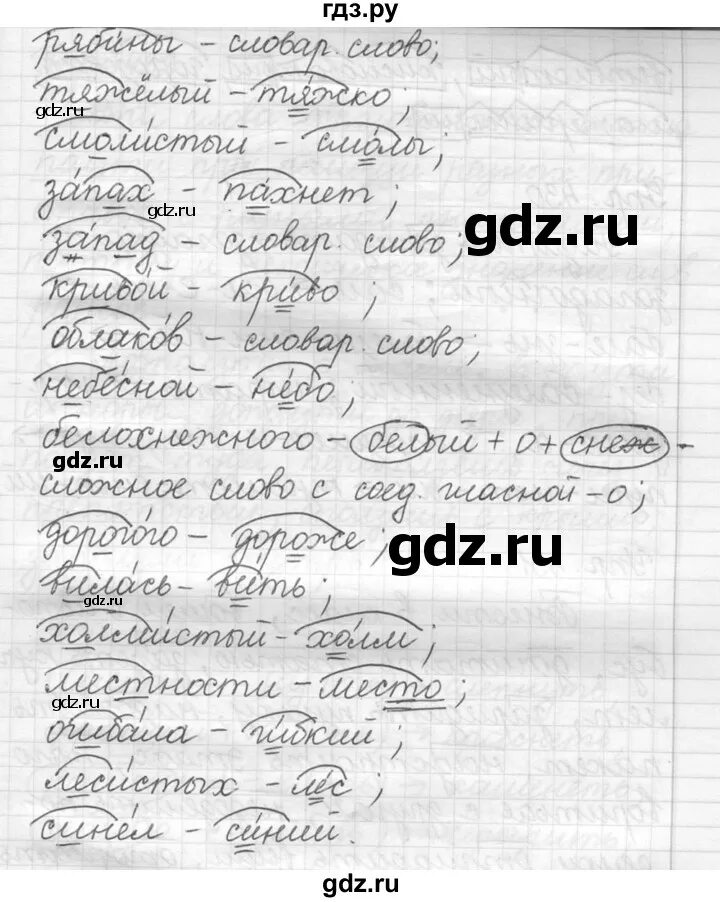 гдз.ру
рябины – словар. слово;
тяжёлый – тяжко;
gdz.ru
смоли́стый – смо́лы;
за́пах – па́хнет;
gdz.ru
gdz.ru
за́пад – словар. слово;
криво́й – кри́во;
облако́в – словар. слово;
небе́сной – не́бо;
белохнежного – белый + о + снеж –
gdz.ru
сложное слово с соед. гласной – о;
дорого́го – дороже;
gdz.ru
вила́сь – ви́ть;
gdz.ru
холми́стый – хо́лм;
местности – место;
gdz.ru
огиба́ла – ги́бкий;
леси́стых – ле́с;
gdz.ru
сине́л – си́ний.
gdz.ru